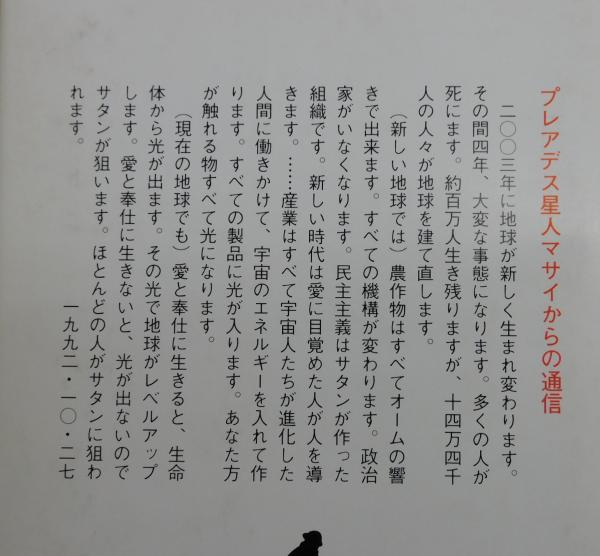 プレアデス星人マサイからの通信
二〇〇三年に地球が新しく生まれ変わります。
その間四年、大変な事態になります。多くの人が
死にます。約百万人生き残りますが、十四万四千
人の人々が地球を建て直します。
（新しい地球では）農作物はすべてオームの響
きで出来ます。すべての機構が変わります。政治
家がいなくなります。民主主義はサタンが作った
組織です。新しい時代は愛に目覚めた人が人を導
きます。……産業はすべて宇宙人たちが進化した
人間に働きかけて、宇宙のエネルギーを入れて作
ります。すべての製品に光が入ります。あなた方
が触れる物すべて光になります。
（現在の地球でも）愛と奉仕に生きると、生命
体から光が出ます。その光で地球がレベルアップ
します。愛と奉仕に生きないと、光が出ないので
サタンが狙います。ほとんどの人がサタンに狙わ
れます。
一九九二・一〇・二七